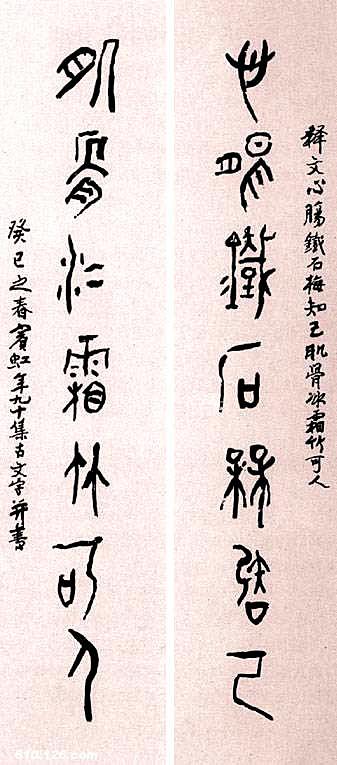 释文心腸鐵石梅知己肌骨冰霜竹可人
心腸鐵石梅知己
肌骨冰霜竹可人
癸巳之春賓虹年九十集古文字并書